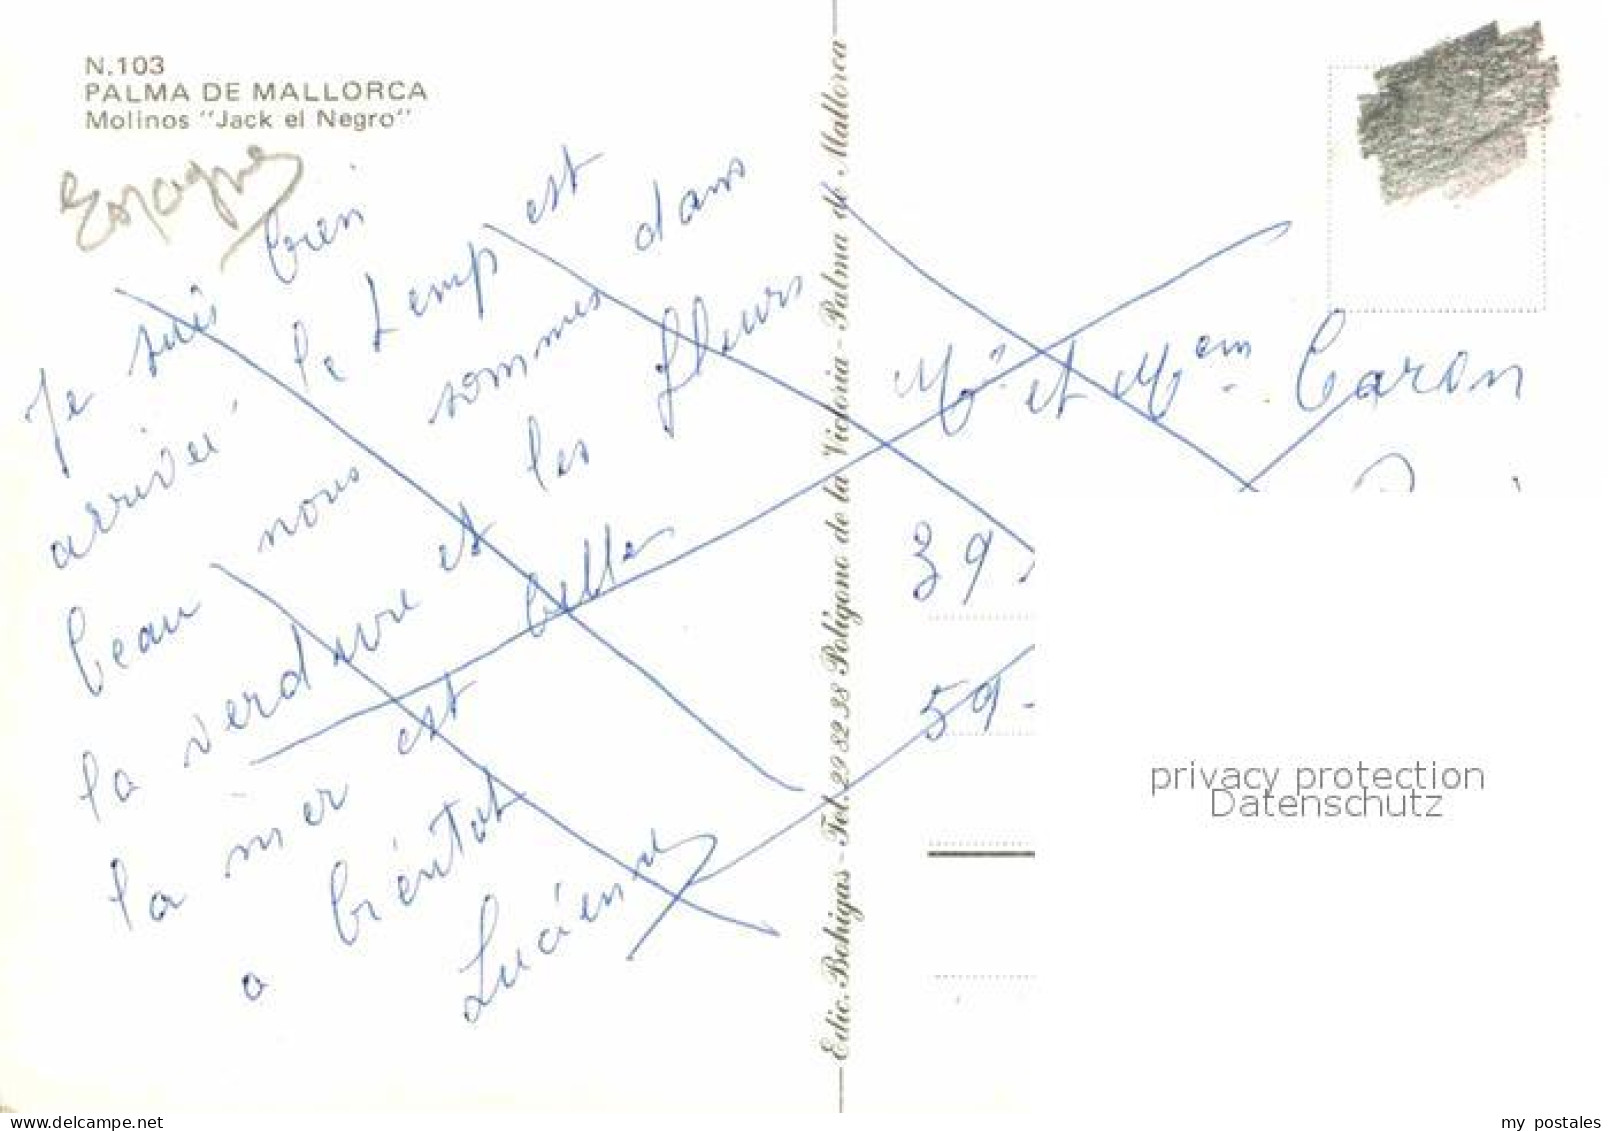 N.103
PALMA DE MALLORCA
Molinos "Jack el Negro"
Espagne
Je suis bien
arriveé le temp est
beau nous sommes dans
la verdure et les fleurs
la mer est belles
a biéntot
Luciénne
Edic. Bohigas - Tel. 29 82 38 Polígono de la Victoria - Palma de Mallorca
Mr et Mem Caron
39
59-
privacy protection
Datenschutz
delcampe.net
my postales